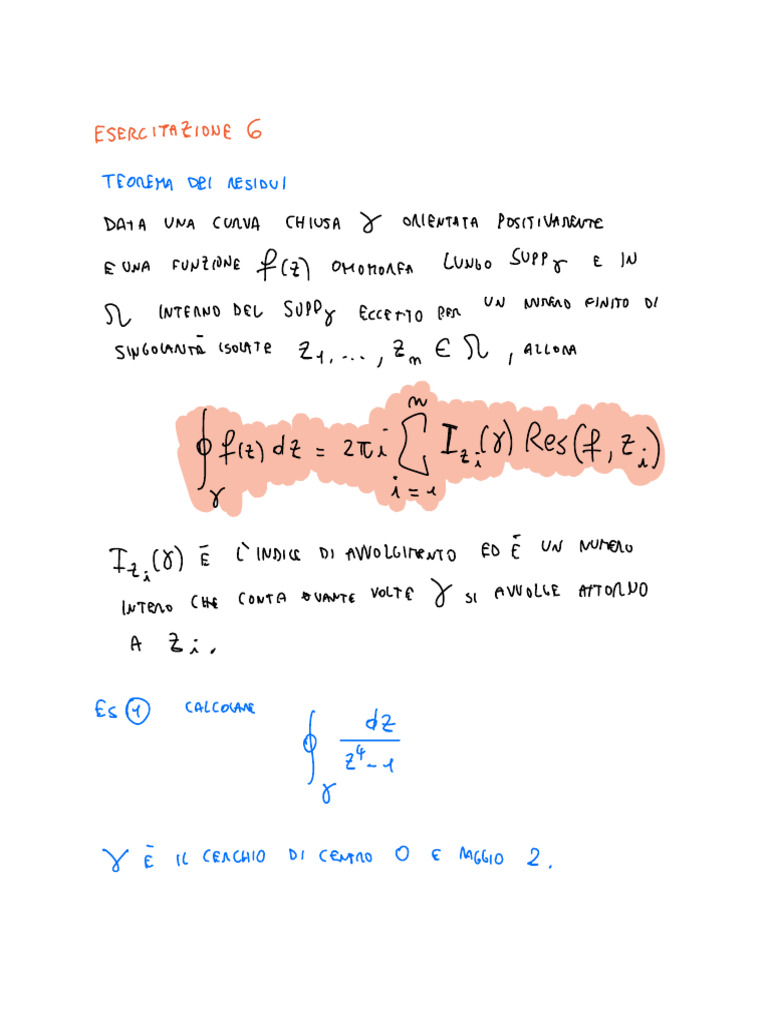 ESERCITAZIONE 6
TEOREMA DEI RESIDUI
DATA UNA CURVA CHIUSA γ ORIENTATA POSITIVAMENTE
E UNA FUNZIONE f(z) OMOMORFA LUNGO SUPPγ E IN
Ω INTERNO DEL SUPPγ ECCETTO PER UN NUMERO FINITO DI
SINGOLARITÀ ISOLATE z₁, ..., zₙ ∈ Ω, ALLORA
∮_γ f(z) dz = 2πi ∑_{i=1}^{n} I_{z_i}(γ) Res(f, z_i)
I_{z_i}(γ) È L'INDICE DI AVVOLGIMENTO ED È UN NUMERO
INTERO CHE CONTA QUANTE VOLTE γ SI AVVOLGE ATTORNO
A z_i.
ES 1 CALCOLARE ∮_γ dz/(z⁴-1)
γ È IL CERCHIO DI CENTRO 0 E RAGGIO 2.